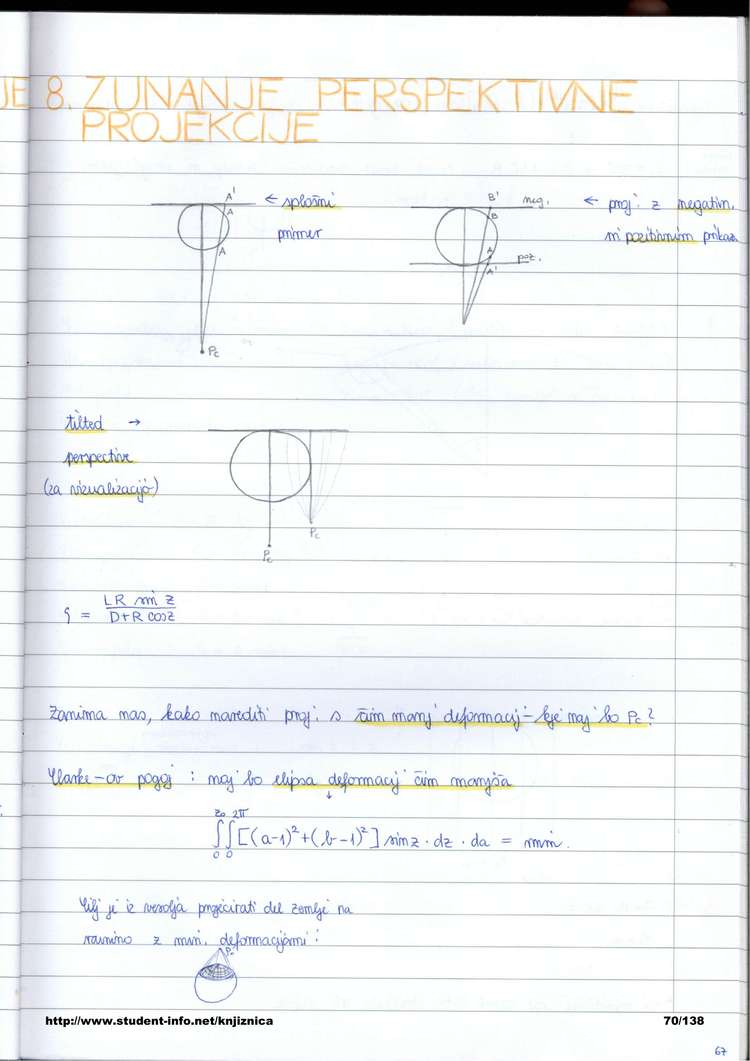 JE 8. ZUNANJE PERSPEKTIVNE
PROJEKCIJE
A'
A
A
Pc
← splošni
primer
B'
B
neg.
A
poz.
A'
← proj. z negativn.
in pozitivnim prikaz
tilted →
perspective
(za vizualizacijo)
Pc
Pc
ρ = LR sin z
D+R cosz
Zanima nas, kako narediti proj. s čim manj deformacij - kje naj bo Pc?
Clarke-ov pogoj : naj bo elipsa deformacij čim manjša
↓
z₀ 2π
∫∫[(a-1)²+(b-1)²] sinz · dz · da = min.
0 0
Cilj je iz vesolja projecirati del zemlje na
ravnino z min. deformacijami:
Pc
http://www.student-info.net/knjiznica
70/138
67